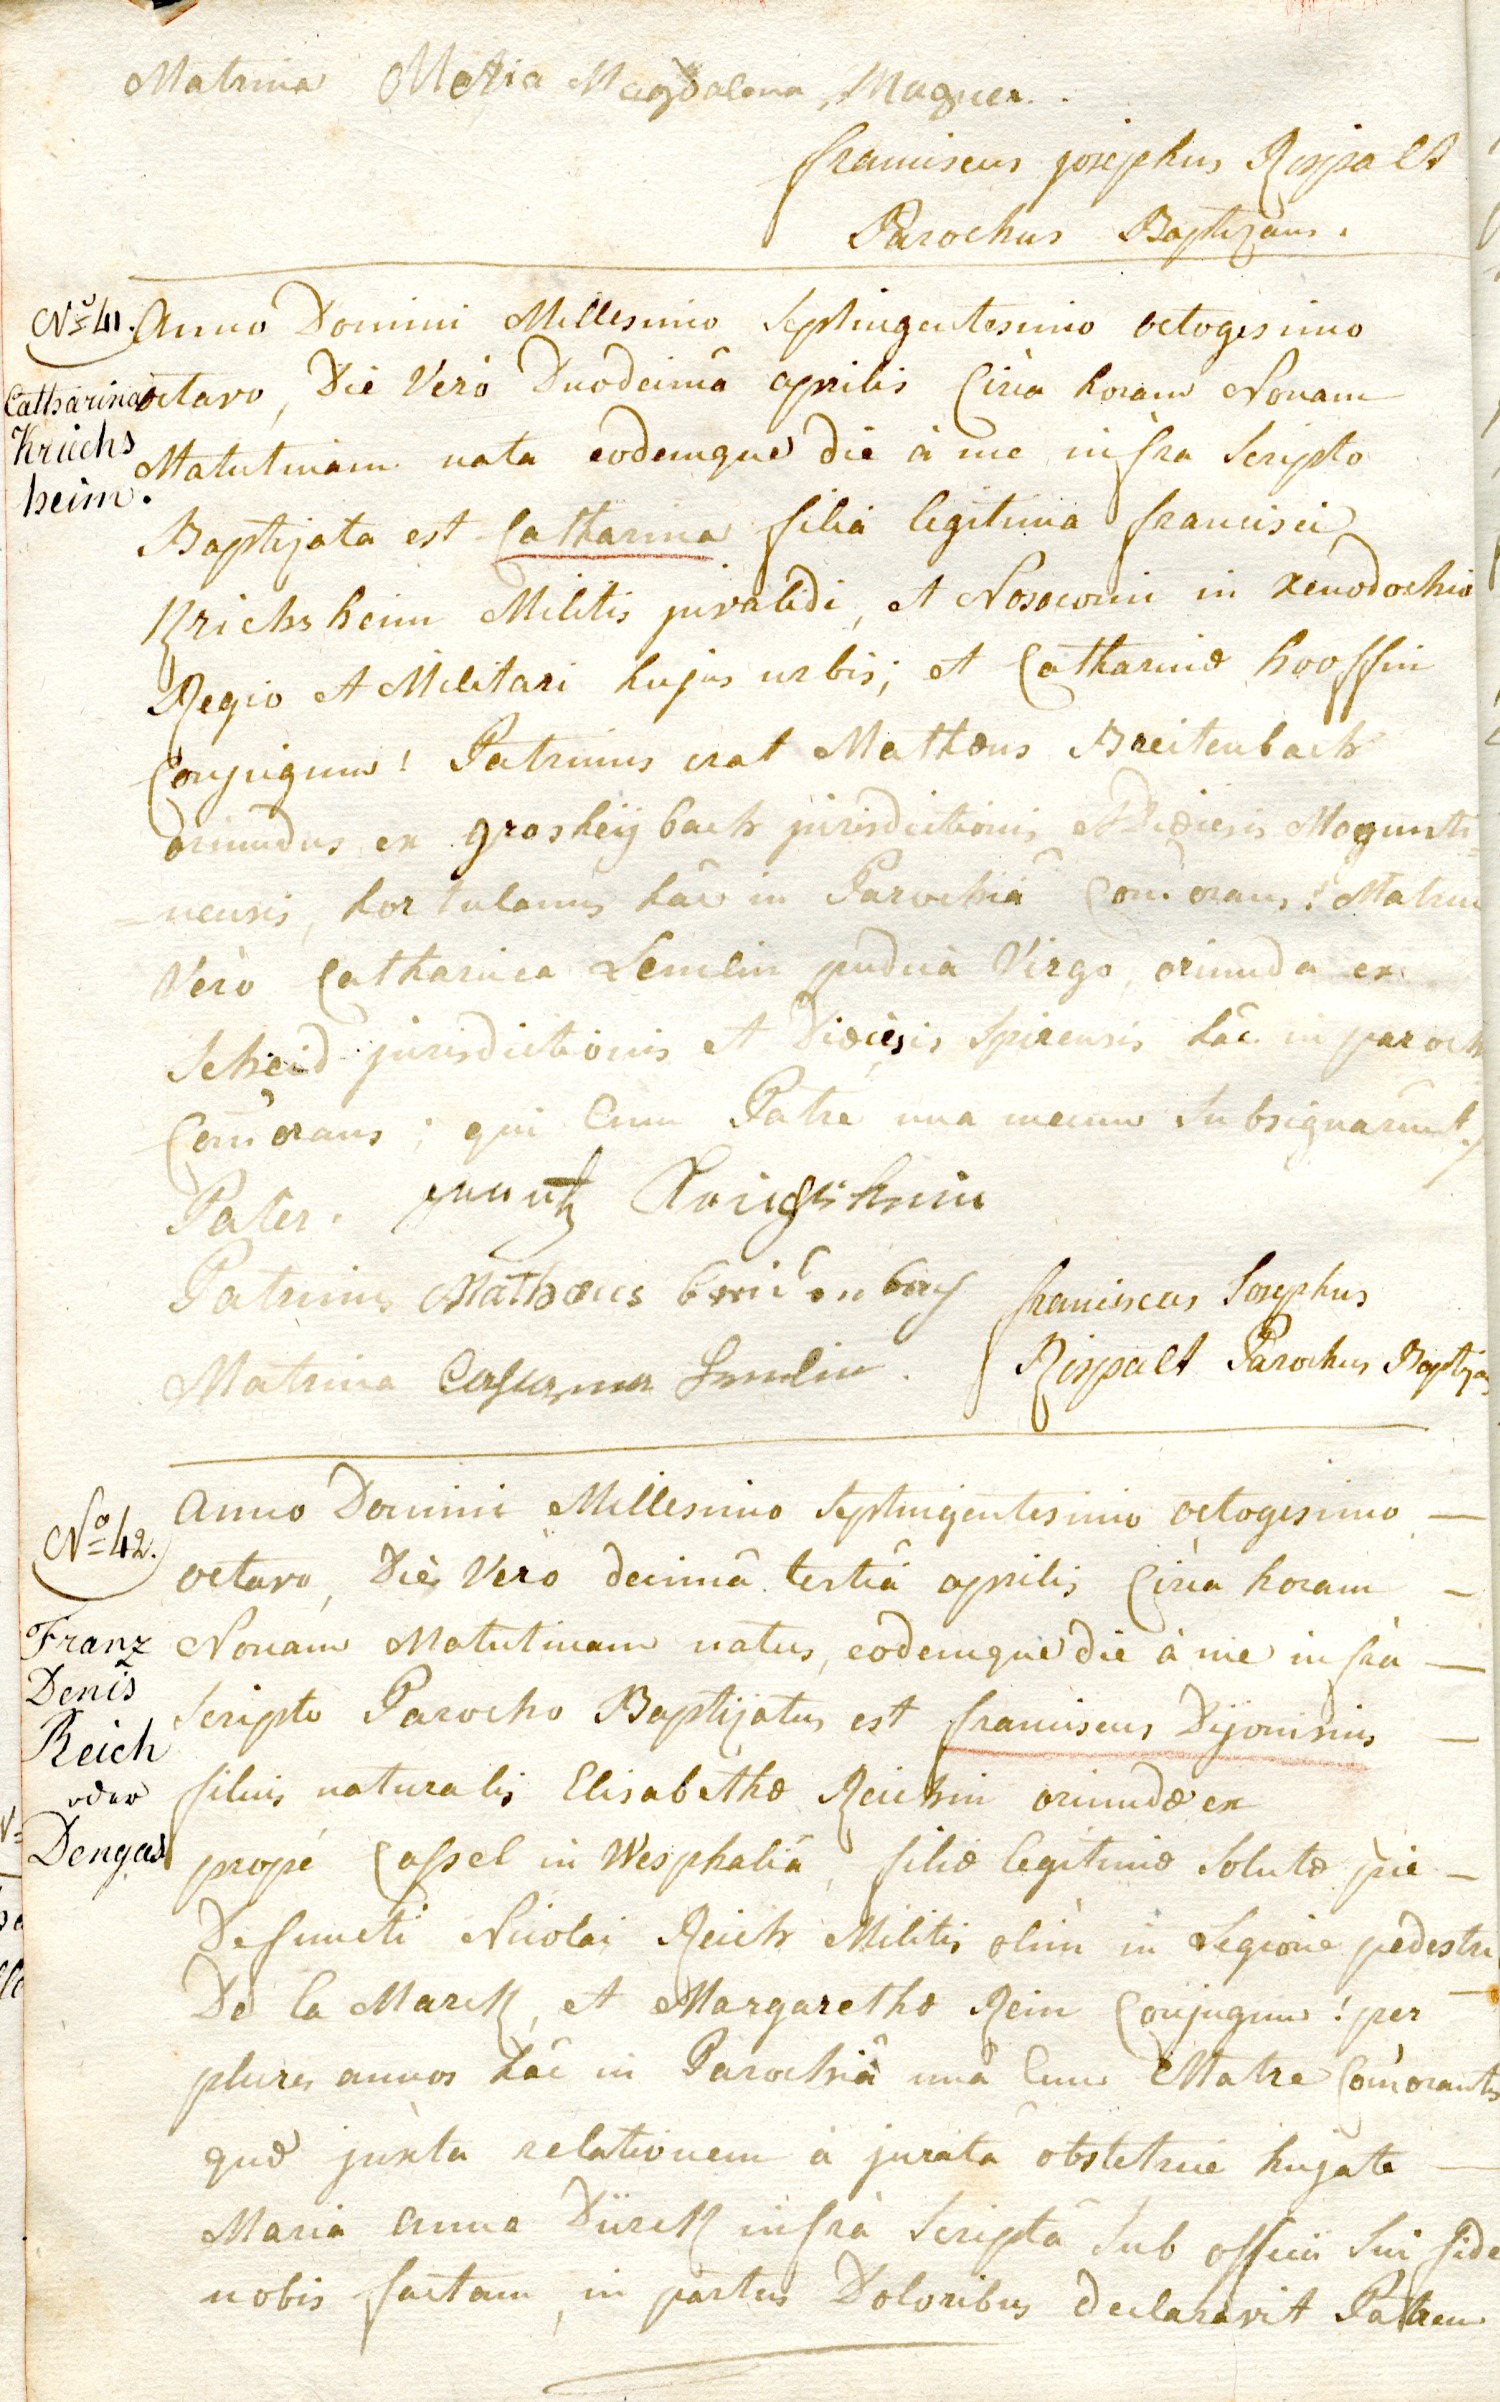 Matrina Maria Magdalena Magner.
franciscus josephus Rispalt
Parochus Baptizans.
No 41. Anno Domini Millesimo Septingentesimo octogesimo
Catharina octavo, Die Verò Duodecimâ aprilis Circa horam Nonam
Kriichs Matutinam nata eodemque die à me infra Scripto
heim. Baptizata est Catharina filia legitima francisci
Krichsheim Militis invalidi, et Nosocomi in Xenodochio
Regio et Militari hujus urbis; et Catharinæ hooffin
Conjugum! Patrinus erat Mathæus Breitenbach
oriundus ex grosheijbach jurisdictionis et Diœcesis Mogunti=
=nensis, hortulanus hâc in Parochiâ Com̃orans! Matrina
Verò Catharina Lemlin pudica Virgo, oriunda ex
Scheid jurisdictionis et Diœcesis Spirensis hâc in paroch
Com̃orans; qui Cum Patre una mecum Subsignarunt.
Pater. frantz Krigsheim
Patrinus Mathæus breitenbach franciscus Josephus
Matrina Catharina Lemlin. Rispalt Parochus Baptizans
No 42. Anno Domini Millesimo Septingentesimo octogesimo —
octavo, Die Verò decimâ tertiâ aprilis Circa horam —
Franz Nonam Matutinam natus, eodemque die à me infrà —
Denis Scripto Parocho Baptizatus est franciscus Dijonisius —
Reich filius naturalis Elisabethæ Reichin oriundæ ex
oder
Dengas propè Cassel in Wesphaliâ, filiæ legitimæ Solutæ piè —
Defuncti Nicolai Reich Militis olim in Legione pedestri
De la Marck, et Margarethæ Rein Conjugum! per —
plures annos hâc in Parochiâ unâ Cum Matre Com̃orantis
quæ juxta relationem à juratâ obstetrice hujate —
Maria anna Dürck infrà Scriptâ Sub officii Sui fide
nobis factam, in partus Doloribus declaravit Patrem